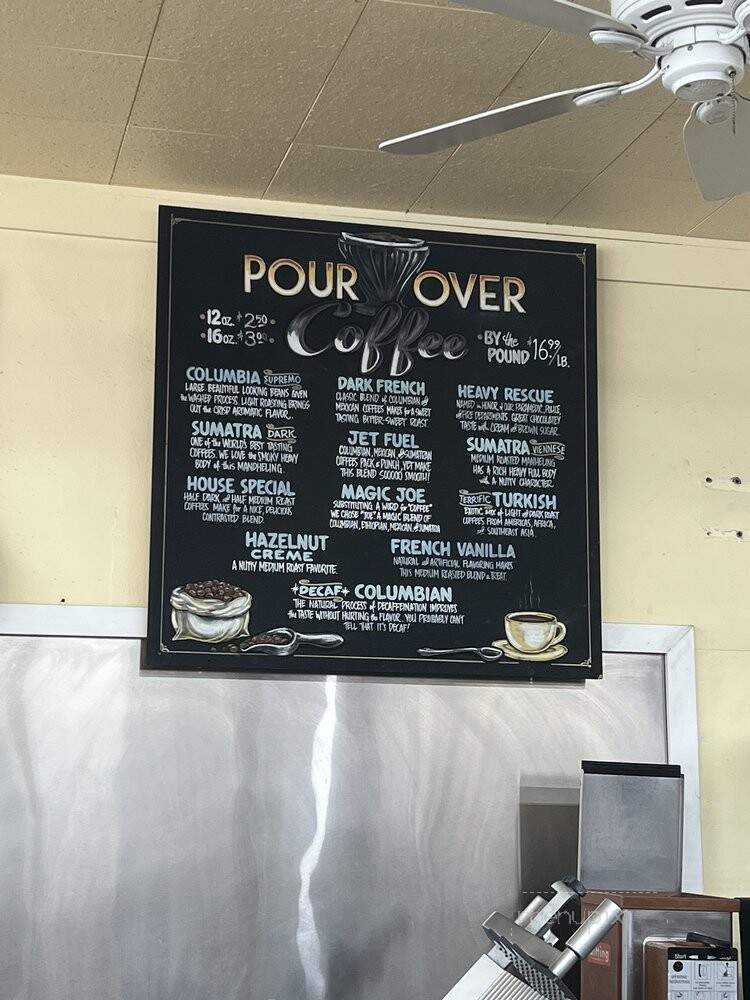 POUR OVER
Coffee
•12oz. $2.50•
•16oz. $3.00•
•BY the POUND $16.99/LB.
COLUMBIA SUPREMO
LARGE BEAUTIFUL LOOKING BEANS GIVEN
the WASHED PROCESS. LIGHT ROASTING BRINGS
OUT the CRISP AROMATIC FLAVOR.
SUMATRA DARK
ONE of the WORLD'S BEST TASTING
COFFEES. WE LOVE the SMOKY HEAVY
BODY of this MANDHELING.
HOUSE SPECIAL
HALF DARK and HALF MEDIUM ROAST
COFFEES MAKE for A NICE, DELICIOUS
CONTRASTED BLEND.
DARK FRENCH
CLASSIC BLEND of COLUMBIAN and
MEXICAN COFFEES MAKES for A SWEET
TASTING BITTER-SWEET ROAST.
JET FUEL
COLUMBIAN, MEXICAN and SUMATRAN
COFFEES PACK a PUNCH, YET MAKE
THIS BLEND SOOOOO SMOOTH!
MAGIC JOE
SUBSTITUTING A WORD for "COFFEE"
WE CHOSE "JOE" A MAGIC BLEND OF
COLUMBIAN, ETHIOPIAN, MEXICAN and SUMATRA
HEAVY RESCUE
NAMED in HONOR of OUR PARAMEDIC, POLICE
and FIRE DEPARTMENTS. GREAT CHOCOLATEY
TASTE with CREAM and BROWN SUGAR.
SUMATRA VIENNESE
MEDIUM ROASTED MANHELING
HAS A RICH HEAVY FULL BODY
with A NUTTY CHARACTER.
TERRIFIC TURKISH
EXOTIC MIX of LIGHT and DARK ROAST
COFFEES FROM AMERICAS, AFRICA,
and SOUTHEAST ASIA.
HAZELNUT
CRÉME
A NUTTY MEDIUM ROAST FAVORITE.
FRENCH VANILLA
NATURAL and ARTIFICIAL FLAVORING MAKES
THIS MEDIUM ROASTED BLEND A TREAT.
DECAF COLUMBIAN
THE NATURAL PROCESS of DECAFFEINATION IMPROVES
the TASTE WITHOUT HURTING the FLAVOR. YOU PROBABLY CAN'T
TELL THAT IT'S DECAF!
menupix
Start